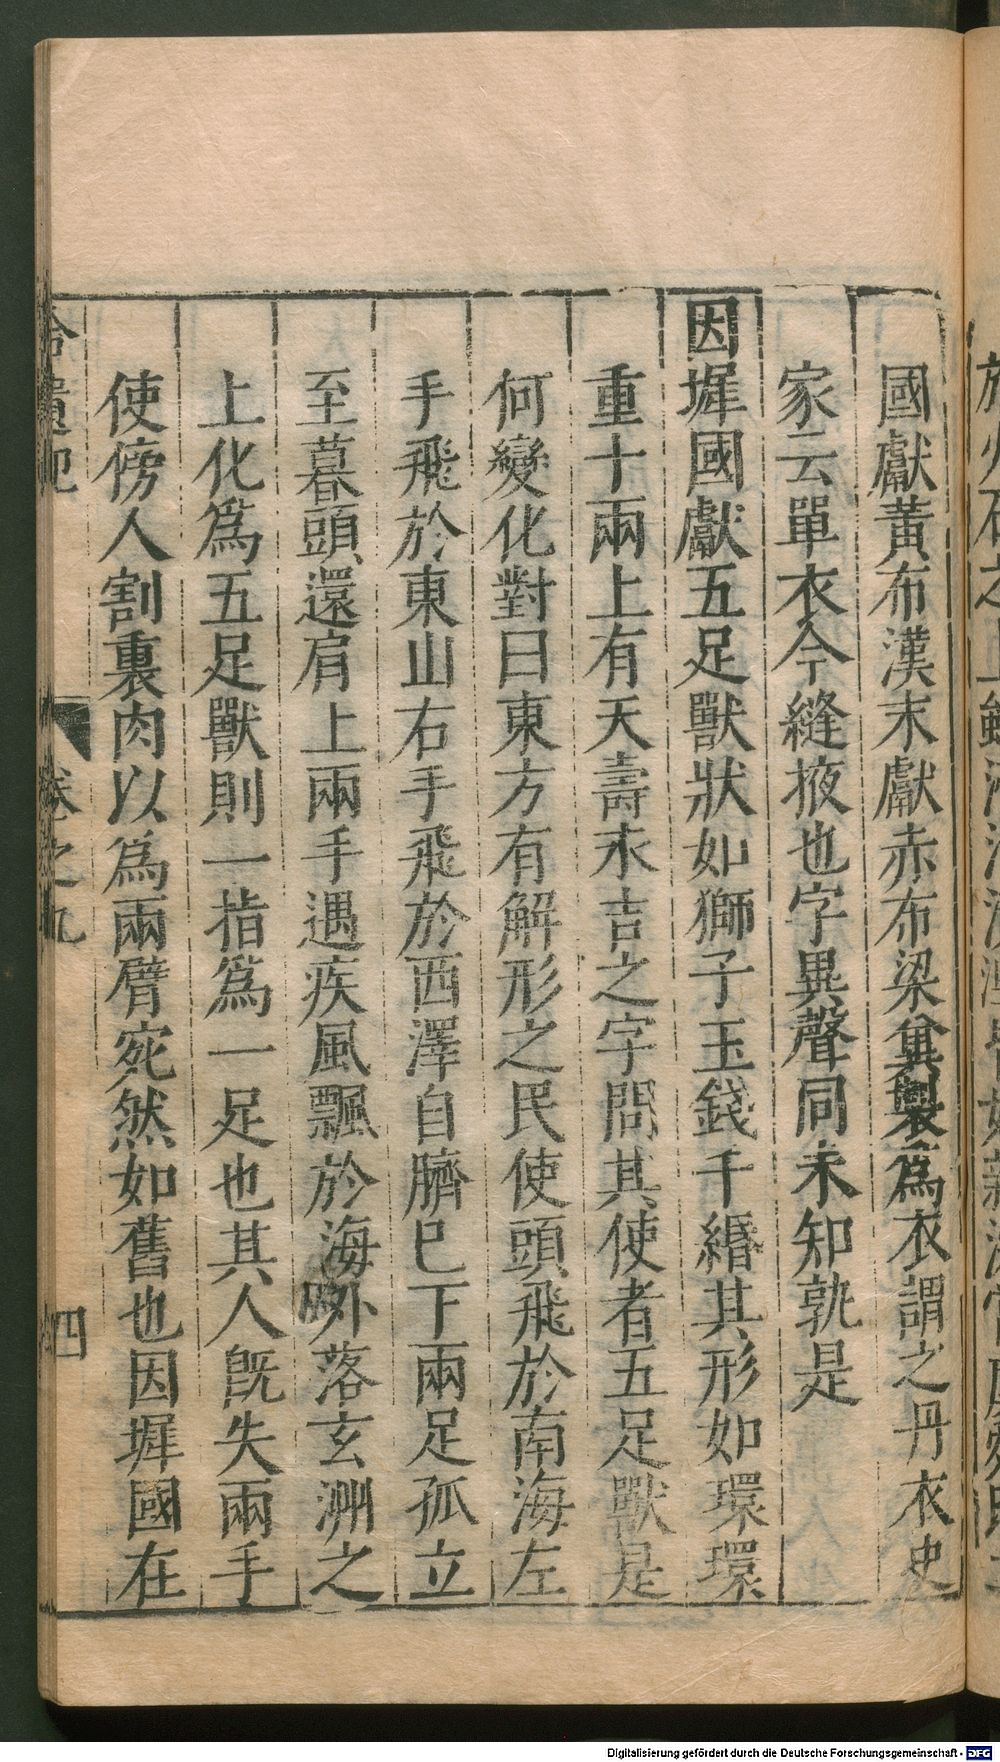 國獻黃布漢末獻赤布梁冀製爲衣謂之丹衣史
家云單衣今縫掖也字異聲同未知孰是
因墀國獻五足獸狀如獅子玉錢千緡其形如環環
重十兩上有天壽永吉之字問其使者五足獸是
何變化對曰東方有解形之民使頭飛於南海左
手飛於東山右手飛於西澤自臍巳下兩足孤立
至暮頭還肩上兩手遇疾風飄於海外落玄洲之
上化爲五足獸則一指爲一足也其人旣失兩手
使傍人割裏肉以爲兩臂宛然如舊也因墀國在
卷之九
四
Digitalisierung gefördert durch die Deutsche Forschungsgemeinschaft - DFG